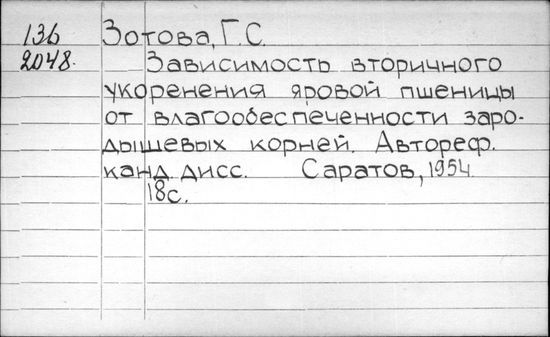 136 Зотова, Г. С.
2048. Зависимость вторичного
укоренения яровой пшеницы
от влагообеспеченности заро-
дышевых корней. Автореф.
канд. дисс. Саратов, 1954
18с.